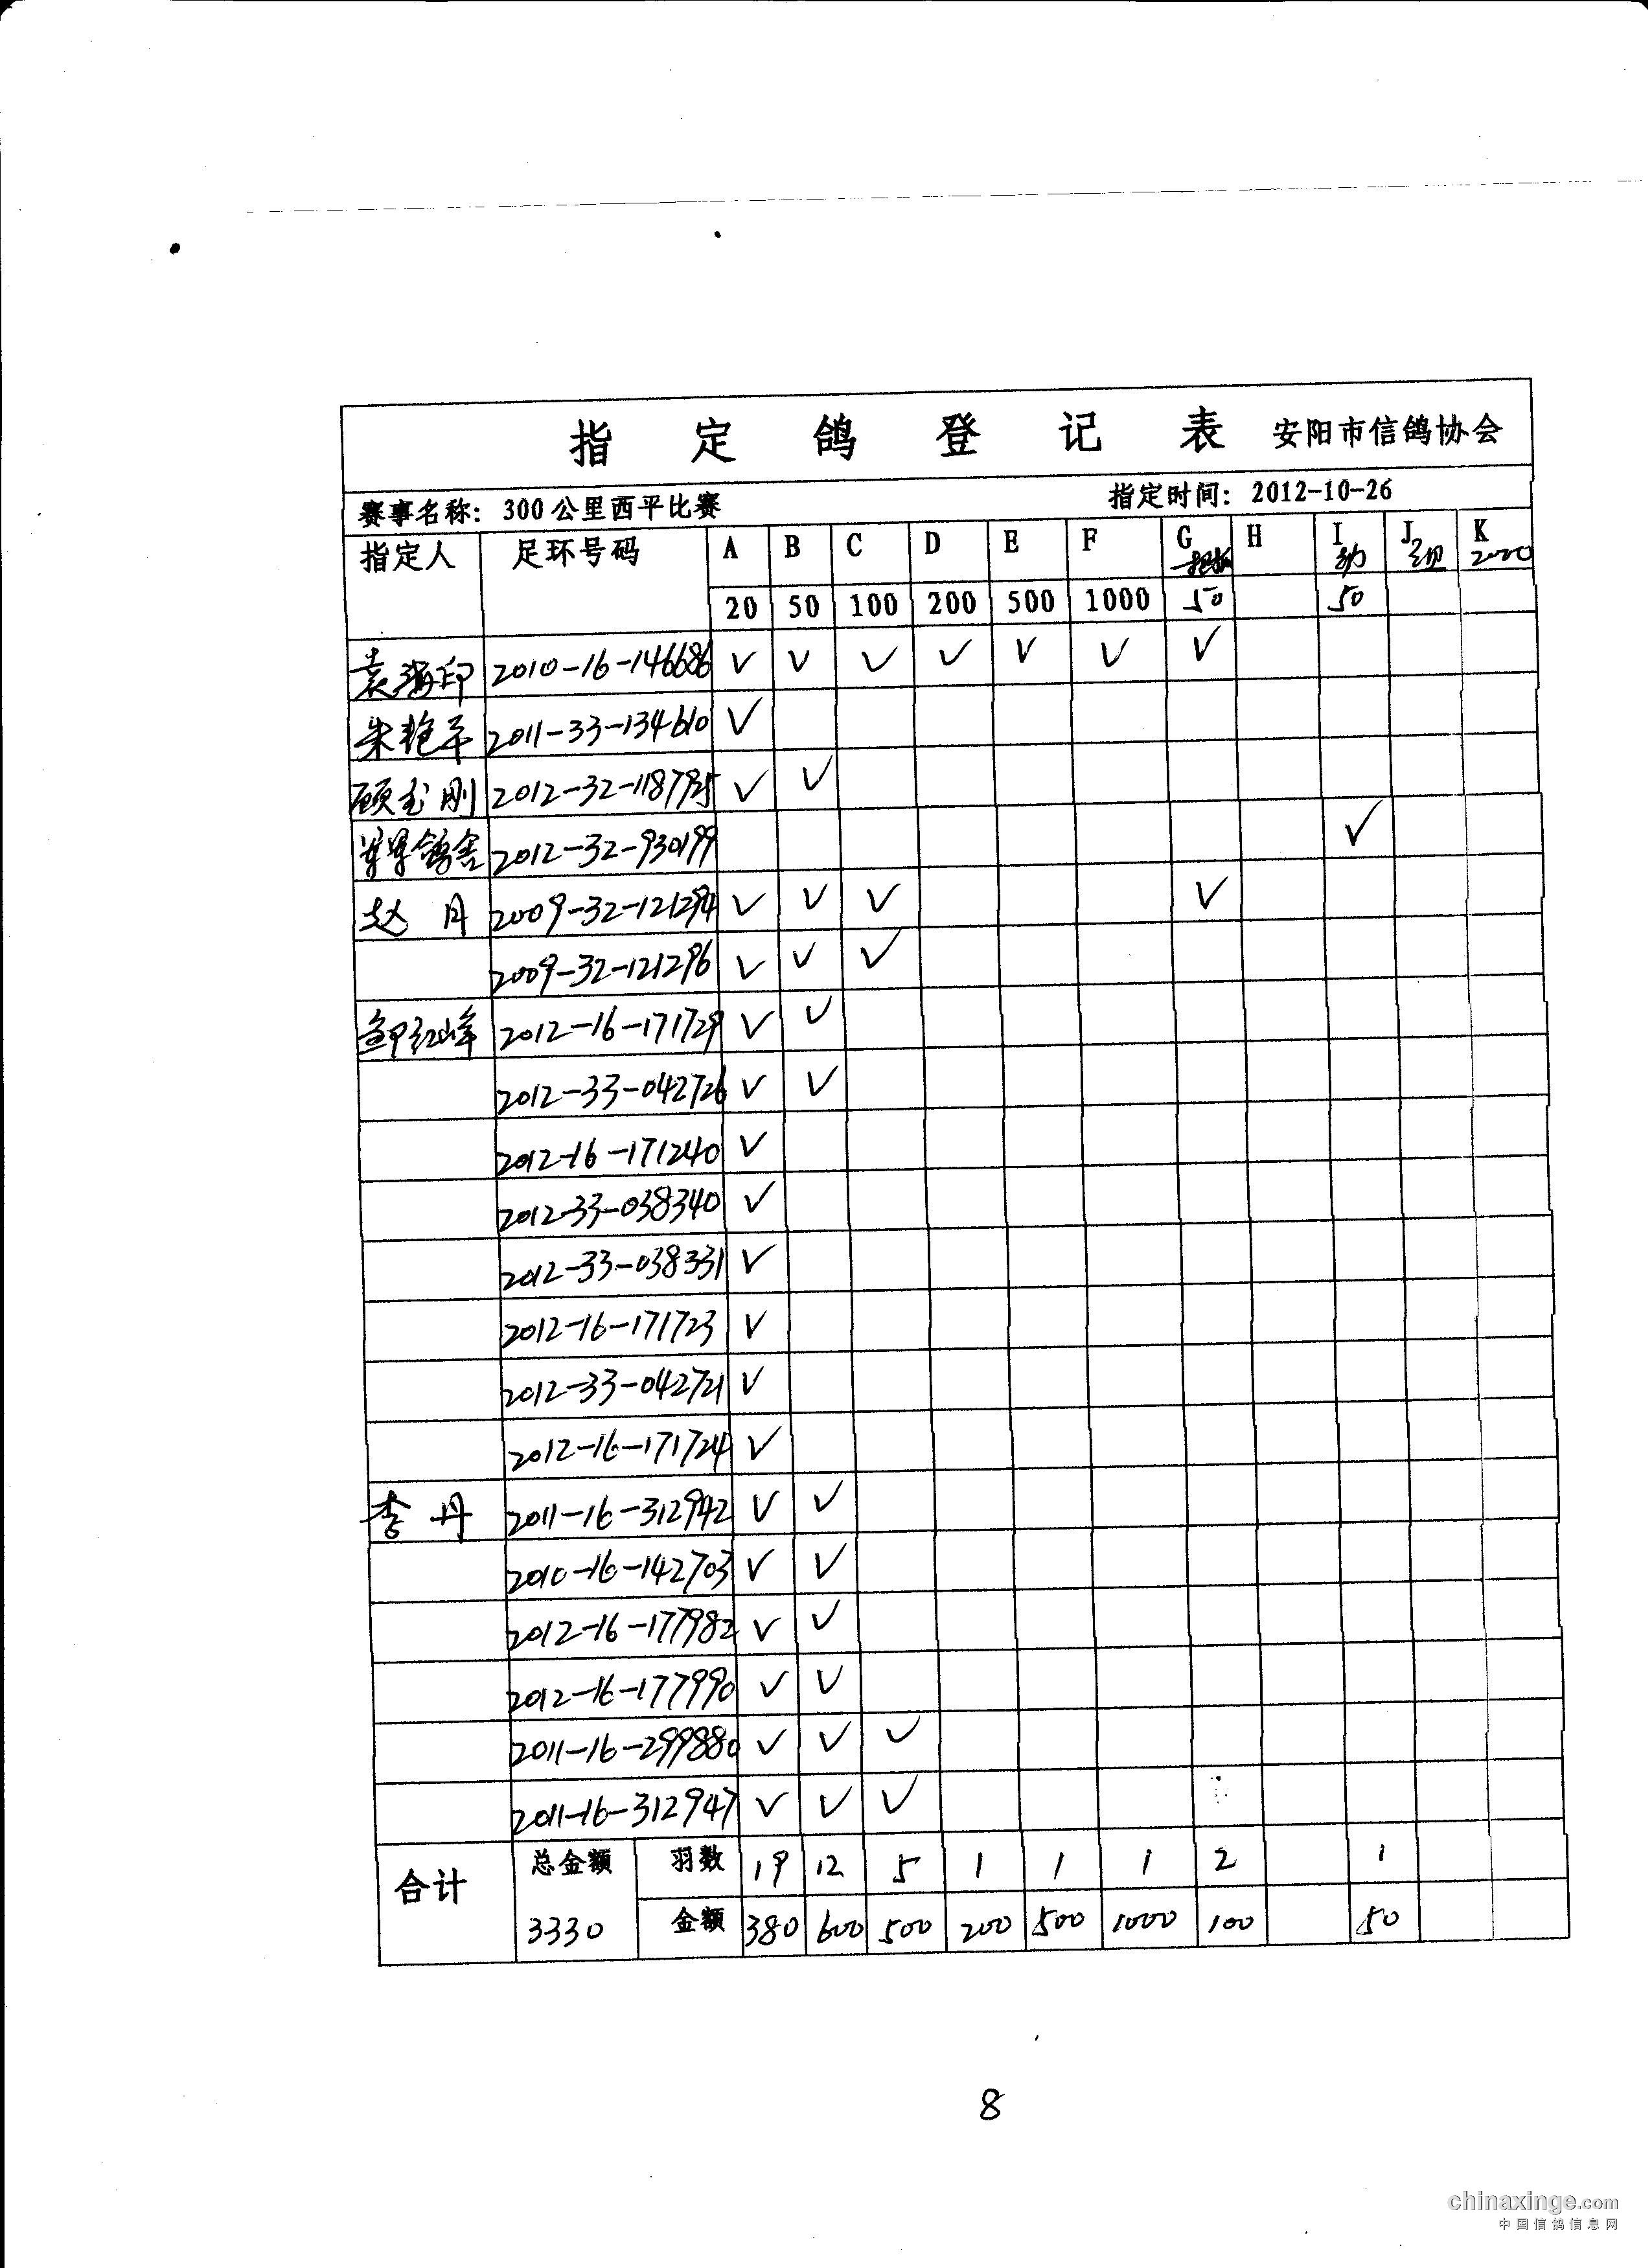 指定鸽登记表 安阳市信鸽协会
赛事名称: 300公里西平比赛 指定时间: 2012-10-26
指定人 足环号码 A B C D E F G H I J K
2000
20 50 100 200 500 1000 50 50
袁海印 2010-16-146686 √ √ √ √ √ √ √
朱艳平 2011-33-134610 √
顾玉刚 2012-32-118795 √ √
鸽舍 2012-32-930199 √
赵丹 2009-32-121294 √ √ √ √
2009-32-121296 √ √ √
红峰 2012-16-171729 √ √
2012-33-042726 √ √
2012-16-171240 √
2012-33-038340 √
2012-33-038331 √
2012-16-171723 √
2012-33-042721 √
2012-16-171724 √
李丹 2011-16-312942 √ √
2010-16-142703 √ √
2012-16-177982 √ √
2012-16-177990 √ √
2011-16-299880 √ √ √
2011-16-312947 √ √ √
合计 总金额 羽数 19 12 5 1 1 1 2 1
3330 金额 380 600 500 200 500 1000 100 50
8
chinaxinge.com
中国信鸽信息网